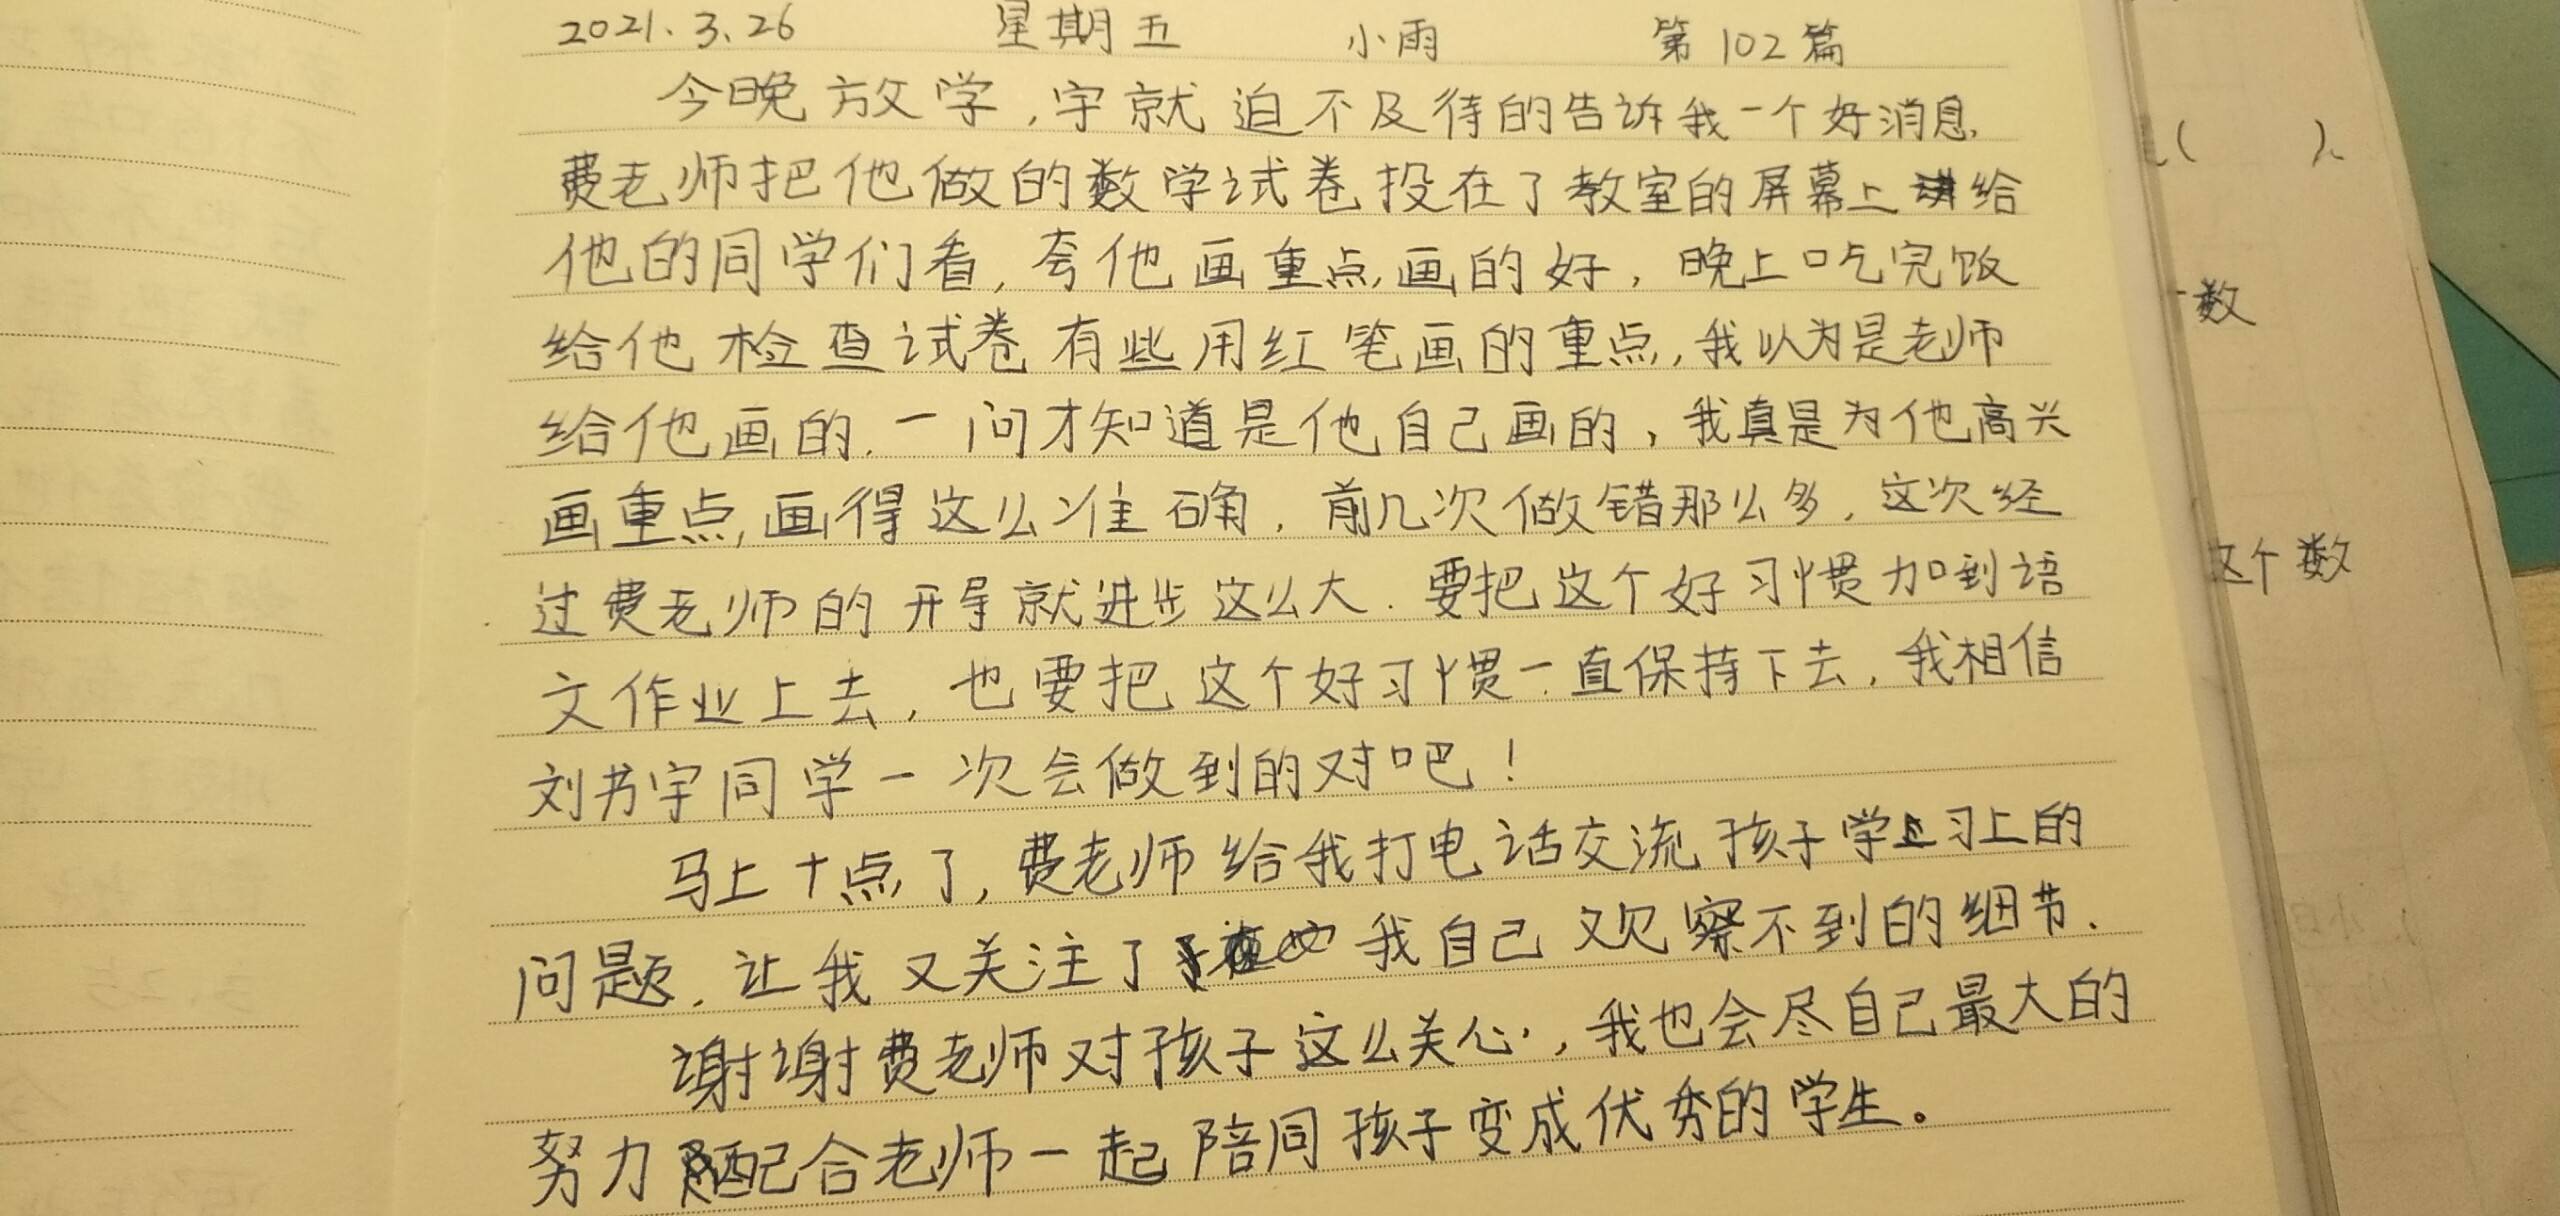 2021.3.26 星期五 小雨 第102篇
今晚放学,宇就迫不及待的告诉我一个好消息,
费老师把他做的数学试卷投在了教室的屏幕上讲给
他的同学们看,夸他画重点画的好,晚上吃完饭
给他检查试卷有些用红笔画的重点,我以为是老师
给他画的.一问才知道是他自己画的,我真是为他高兴
画重点,画得这么准确,前几次做错那么多,这次经
过费老师的开导就进步这么大.要把这个好习惯加到语
文作业上去,也要把这个好习惯一直保持下去,我相信
刘书宇同学一次会做到的对吧!
马上十点了,费老师给我打电话交流孩子学习上的
问题,让我又关注了我自己观察不到的细节.
谢谢费老师对孩子这么关心,我也会尽自己最大的
努力配合老师一起陪同孩子变成优秀的学生。
( ).
数
这个数